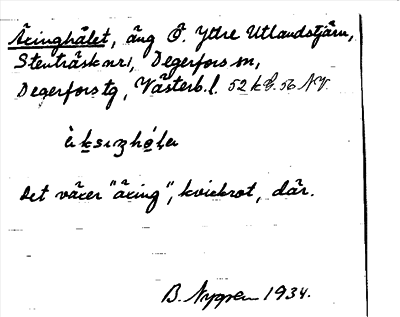 Äxinghålet, äng Ö. Yttre Utlandstjärn,
Stenträsk nr 1, Degerfors sn,
Degerfors tg, Västerb. l. 52 k 8. 56 NV.
Det växer "äxing", kvickrot, där.
B. Nygren 1934.